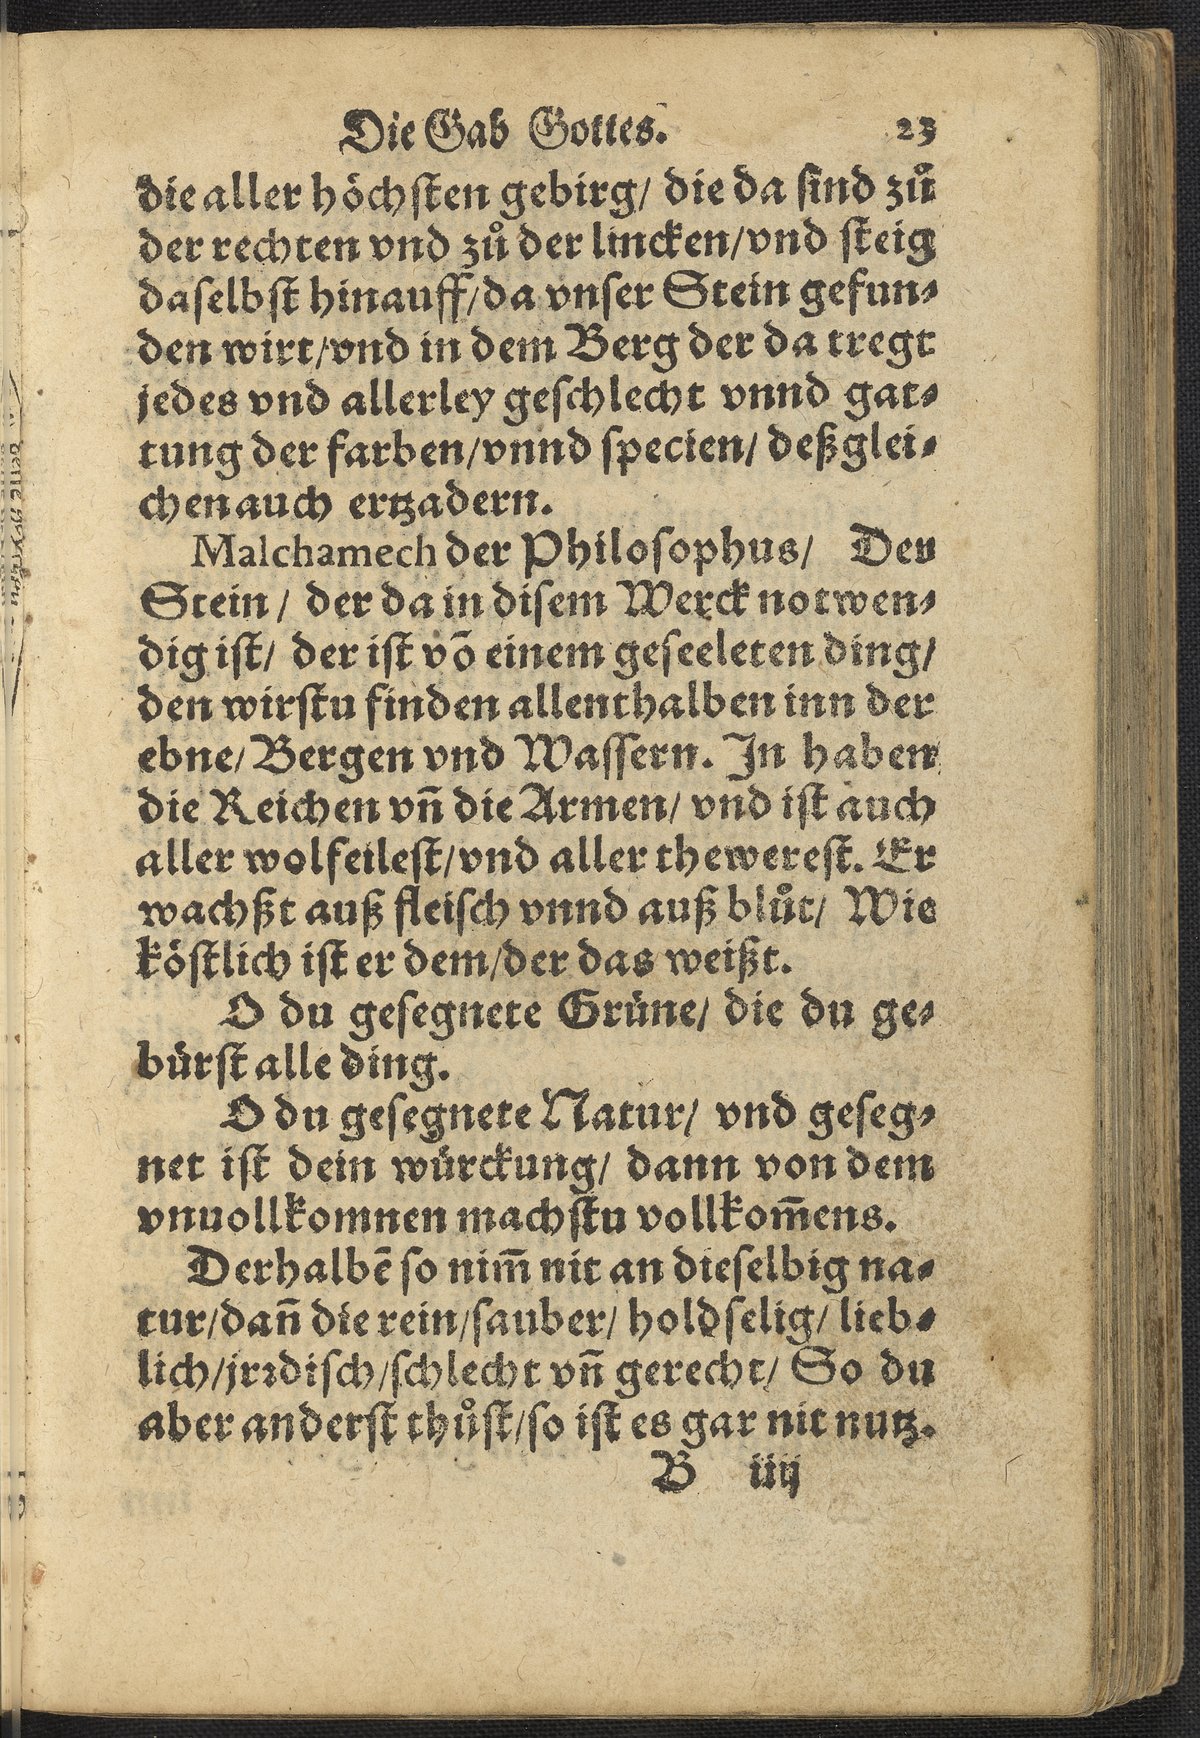 Die Gab Gottes. 23
die aller höchsten gebirg/ die da sind zů
der rechten vnd zů der lincken/vnd steig
daselbst hinauff/da vnser Stein gefun⸗
den wirt/vnd in dem Berg der da tregt
jedes vnd allerley geschlecht vnnd gat⸗
tung der farben/vnnd specien/ deßglei⸗
chen auch ertzadern.
Malchamech der Philosophus/ Den
Stein/ der da in disem Werck notwen⸗
dig ist/ der ist võ einem geseeleten ding/
den wirstu finden allenthalben inn der
ebne/ Bergen vnd Wassern. In haben
die Reichen vñ die Armen/ vnd ist auch
aller wolfeilest/vnd aller thewerest. Er
wachßt auß fleisch vnnd auß blůt/ Wie
köstlich ist er dem/der das weißt.
O du gesegnete Grüne/ die du ge⸗
bürst alle ding.
O du gesegnete Natur/ vnd geseg⸗
net ist dein würckung/ dann von dem
vnuollkomnen machstu vollkom̃ens.
Derhalbẽ so nim̃ nit an dieselbig na⸗
tur/dañ die rein/sauber/ holdselig/ lieb⸗
lich/jrꝛdisch/schlecht vñ gerecht/ So du
aber anderst thůst/so ist es gar nit nutz.
B iiij